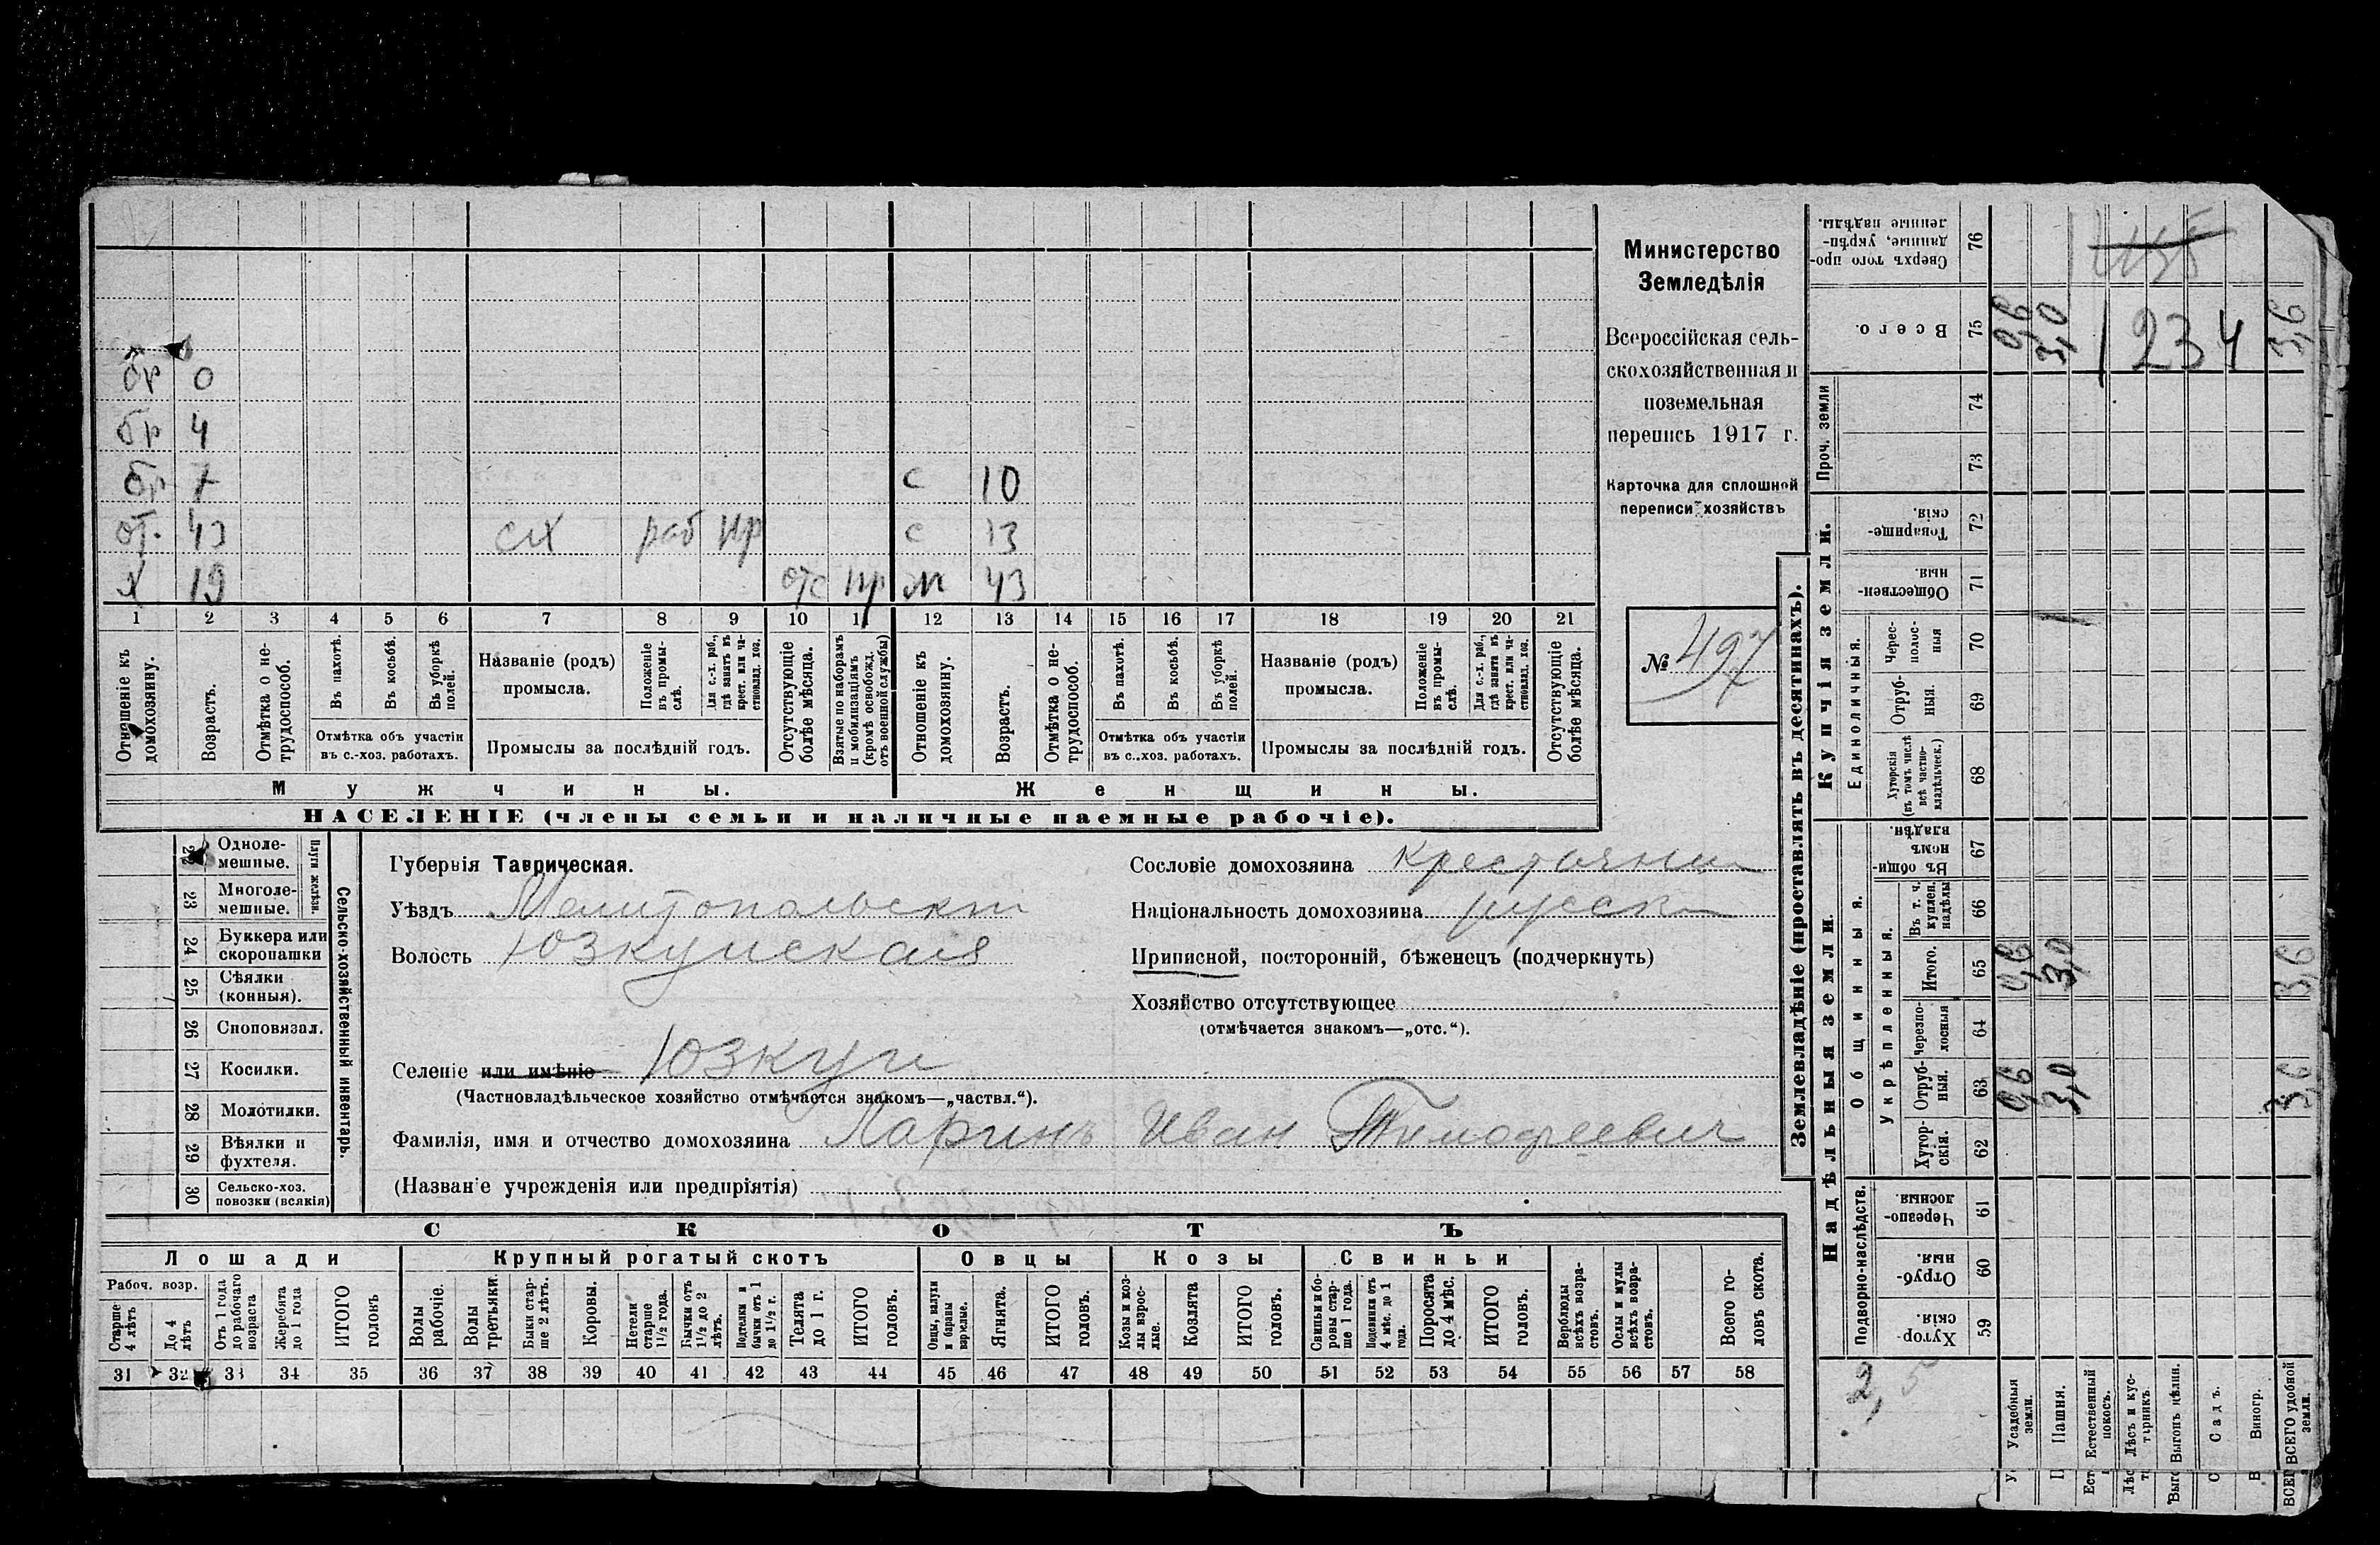 бр 0
бр 4
бр 7 с 10
от. 43 сх раб кр с 13
х 19 отс кр м 43
1 2 3 4 5 6 7 8 9 10 11 12 13 14 15 16 17 18 19 20 21
Отношеніе къ домохозяину.
Возрастъ.
Отмѣтка о нетрудоспособ.
Въ пахотѣ.
Въ косьбѣ.
Въ уборкѣ полей.
Отмѣтка объ участіи въ с.-хоз. работахъ.
Названіе (родъ) промысла.
Положеніе въ промыслѣ.
Для с.-х. раб., гдѣ занятъ въ крест. или частновлад. хоз.
Промыслы за послѣдній годъ.
Отсутствующіе болѣе мѣсяца.
Взятые по наборамъ и мобилизаціямъ (кромѣ освобожд. отъ военной службы)
Отношеніе къ домохозяину.
Возрастъ.
Отмѣтка о нетрудоспособ.
Въ пахотѣ.
Въ косьбѣ.
Въ уборкѣ полей.
Отмѣтка объ участіи въ с.-хоз. работахъ.
Названіе (родъ) промысла.
Положеніе въ промыслѣ.
Для с.-х. раб., гдѣ занята въ крест. или частновлад. хоз.
Промыслы за послѣдній годъ.
Отсутствующіе болѣе мѣсяца.
Мужчины. Женщины.
НАСЕЛЕНІЕ (члены семьи и наличные наемные рабочіе).
Министерство
Земледѣлія
Всероссійская сель-
скохозяйственная и
поземельная
перепись 1917 г.
Карточка для сплошной
переписи хозяйствъ
№ 497
22 Одноле-мешные.
23 Многоле-мешные.
Плуги желѣзн.
24 Буккера или скоропашки
25 Сѣялки (конныя).
26 Сноповязал.
27 Косилки.
28 Молотилки.
29 Вѣялки и фухтеля.
30 Сельско-хоз. повозки (всякія)
Сельско-хозяйственный инвентарь.
Губернія Таврическая.
Уѣздъ Мелитопольскій
Волость Юзкуйская
Селеніе или имѣніе Юзкуи
(Частновладѣльческое хозяйство отмѣчается знакомъ—„частвл.“).
Фамилія, имя и отчество домохозяина Ларинъ Иван Тимофеевич
(Названіе учрежденія или предпріятія)
Сословіе домохозяина крестьянин
Національность домохозяина русск
Приписной, посторонній, бѣженецъ (подчеркнуть)
Хозяйство отсутствующее
(отмѣчается знакомъ—„отс.“).
СКОТЪ
Лошади Крупный рогатый скотъ Овцы Козы Свиньи
Рабоч. возр.
Старше 4 лѣтъ
До 4 лѣтъ
Отъ 1 года до рабочаго возраста
Жеребята до 1 года
ИТОГО головъ
Волы рабочіе.
Волы третьяки.
Быки старше 2 лѣтъ.
Коровы.
Нетели старше 1½ года.
Бычки отъ 1½ до 2 лѣтъ.
Подтелки и бычки отъ 1 до 1½ г.
Телята до 1 г.
ИТОГО головъ.
Овцы, валухи и бараны взрослые.
Ягнята.
ИТОГО головъ.
Козы и козлы взрослые.
Козлята
ИТОГО головъ.
Свиньи и боровы старше 1 года.
Подсвинки отъ 4 мѣс. до 1 года.
Поросята до 4 мѣс.
ИТОГО головъ.
Верблюды всѣхъ возрастовъ.
Ослы и мулы всѣхъ возрастовъ.
Всего головъ скота.
31 32 33 34 35 36 37 38 39 40 41 42 43 44 45 46 47 48 49 50 51 52 53 54 55 56 57 58
Землевладѣніе (проставлять въ десятинахъ).
Сверхъ того проданные, укрѣпленные надѣлы. 76
1135
Всего. 75 0,6 3,0 3,6
1234
Проч. земли 74 73
Купчія земли.
Товарищескія. 72
Общественныя. 71
Единоличныя.
Череcполосныя 70
Отрубныя. 69
Хуторскія (въ томъ числѣ всѣ частновладѣльческ.) 68
Надѣльныя земли.
Общинныя.
Въ общинномъ владѣн. 67
Укрѣпленныя.
Въ т. ч. куплен. надѣлы 66
Итого. 65 0,6 3,0 3,6
Черезполосныя 64
Отрубныя. 63 0,6 3,0 3,6
Хуторскія. 62
Подворно-наслѣдств.
Черезполосныя. 61
Отрубныя. 60
Хуторскія. 59
2,5
Усадебныя земли.
Пашня.
Естественный покосъ.
Лѣсъ и кустарникъ.
Выгонъ цѣлин.
Садъ.
Виногр.
ВСЕГО удобной земли.